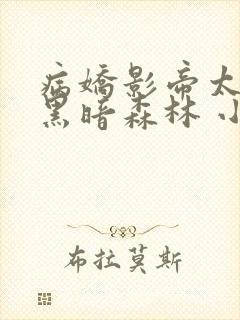 病嬌影帝太
黑暗森林 小
布拉莫斯